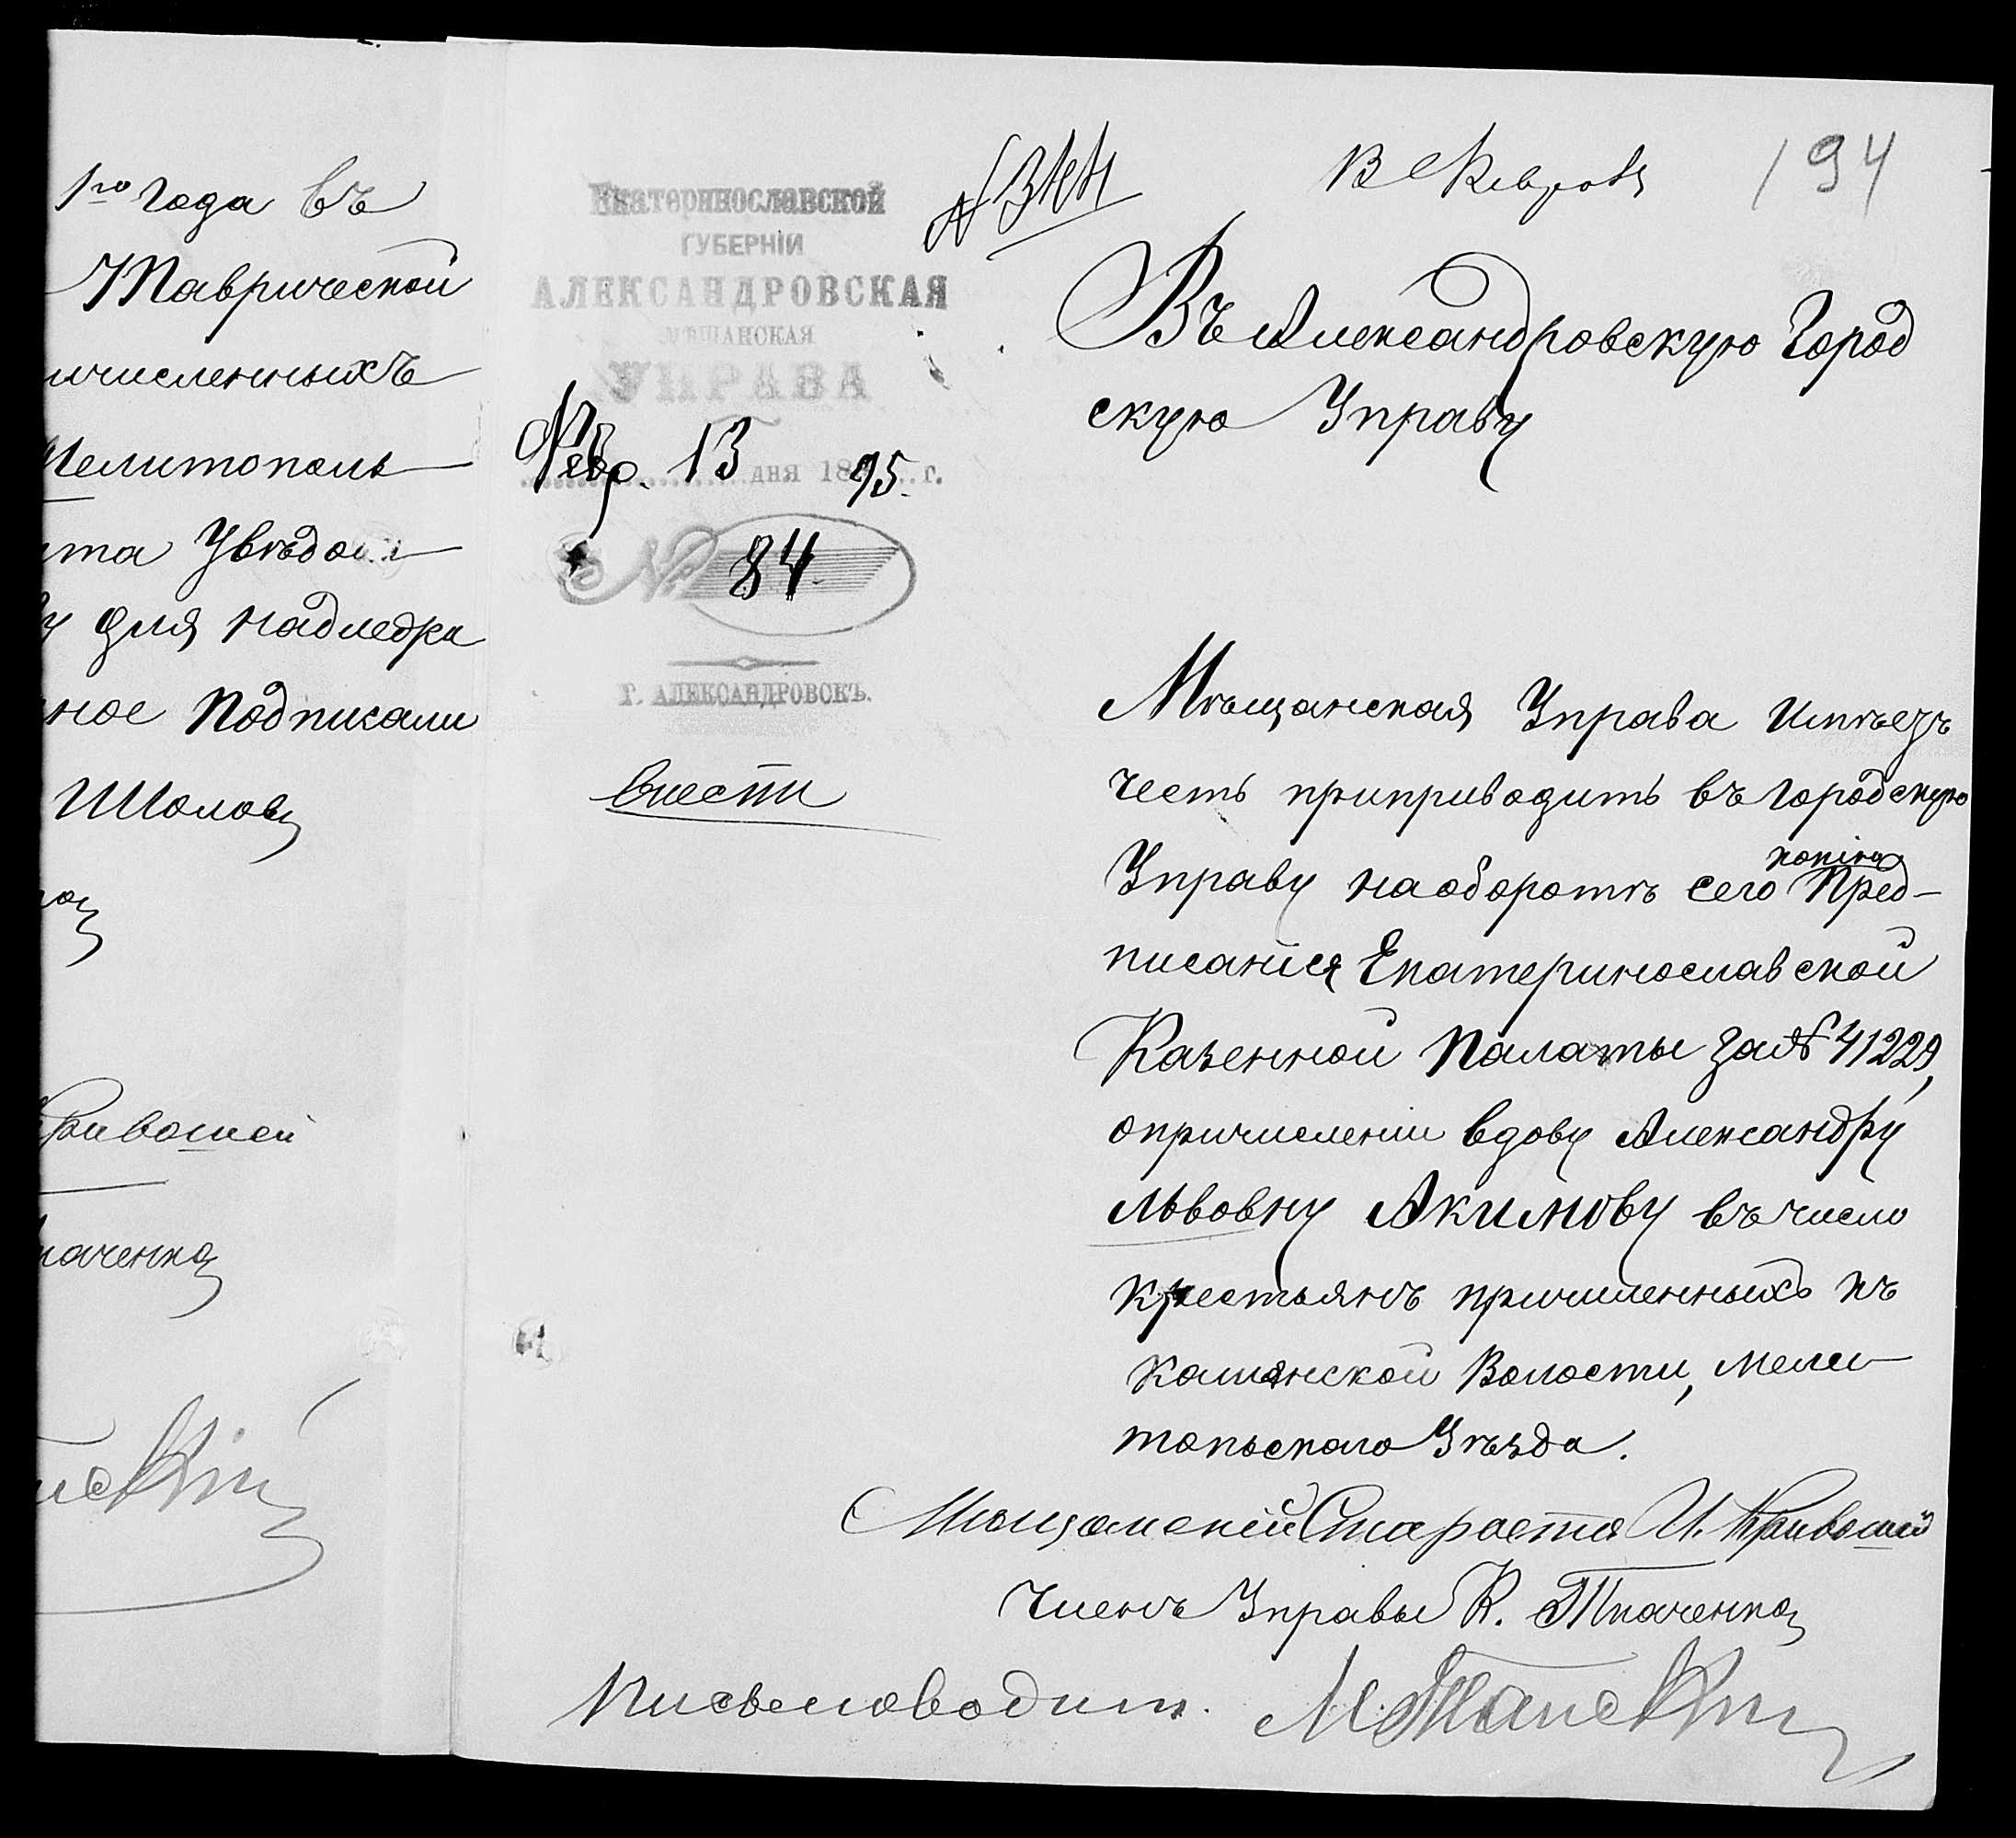 1го года въ
Таврической
ичисленныхъ
Мелитополь
та Увѣдом
у для надлежа
ное подписали
Шолов
Кривошей
каченко
Екатеринославской
ГУБЕРНІИ
АЛЕКСАНДРОВСКАЯ
МѢЩАНСКАЯ
УПРАВА
Февр. 13 дня 1895. г.
№ 84
Г. АЛЕКСАНДРОВСКЪ.
Внести
194
Въ Александровскую Город
скую Управу
Мѣщанская Управа имѣетъ
честь приприводить въ городскую
Управу на оборотѣ сего копію Пред-
писанія Екатеринославской
Казенной Палаты за № 41229,
опричисленіи вдову Александру
Львовну Акимову въ число
крестьянъ причисленныхъ къ
Камянской Волости, Мели
топьскаго Уѣзда.
Мѣщанскій Староста И. Кривошей
Членъ Управы К. Ткаченко
Письмоводит.